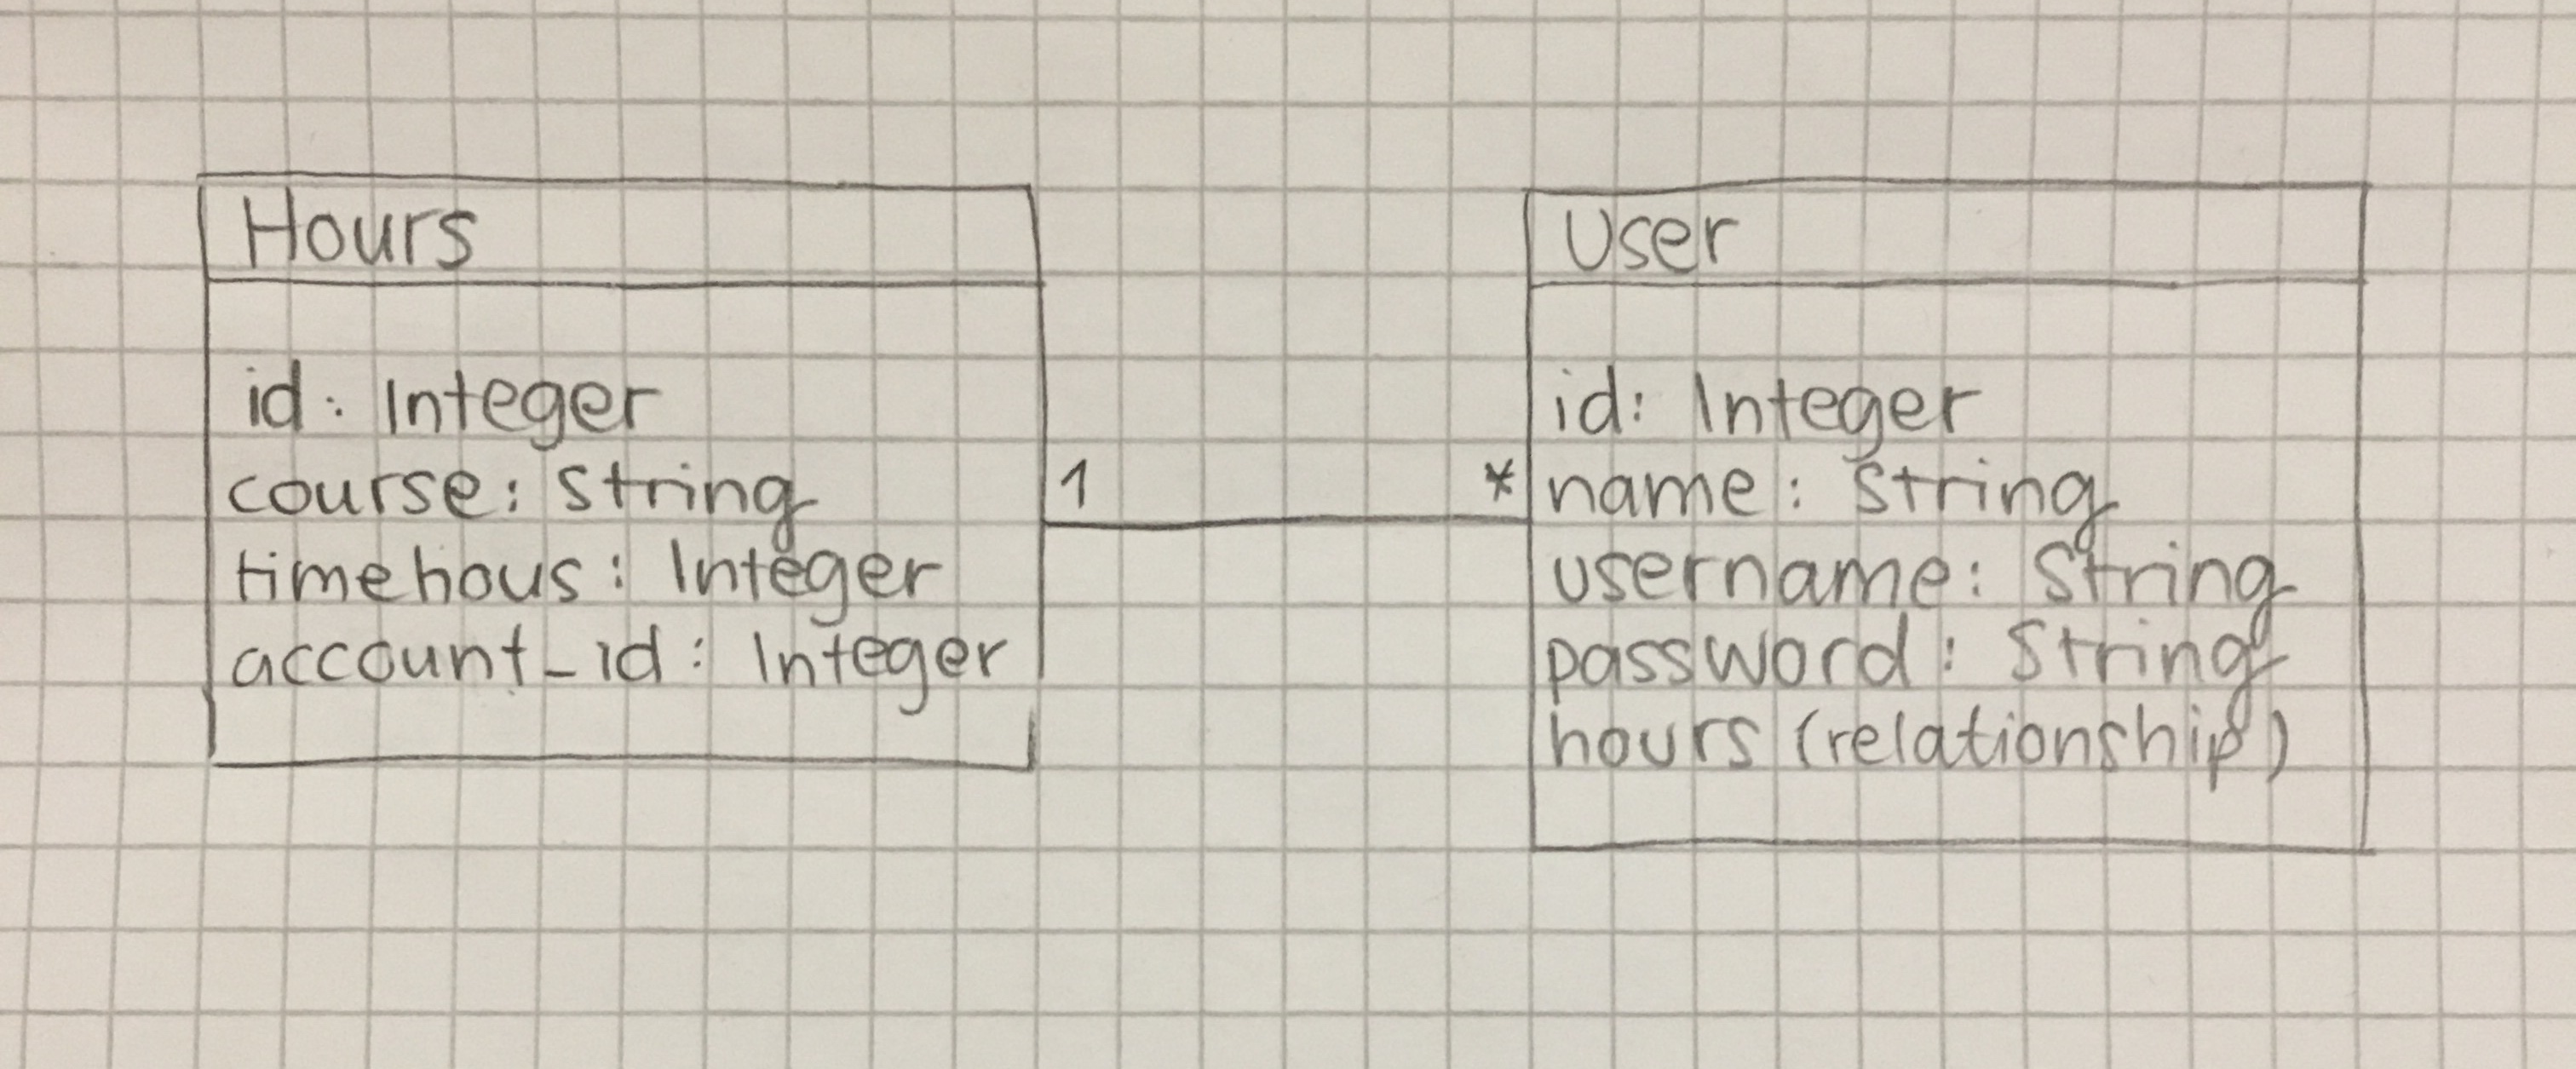 Hours
id: Integer
course: String
timehous: Integer
account_id: Integer
1
*
User
id: Integer
name: String
username: String
password: String
hours (relationship)